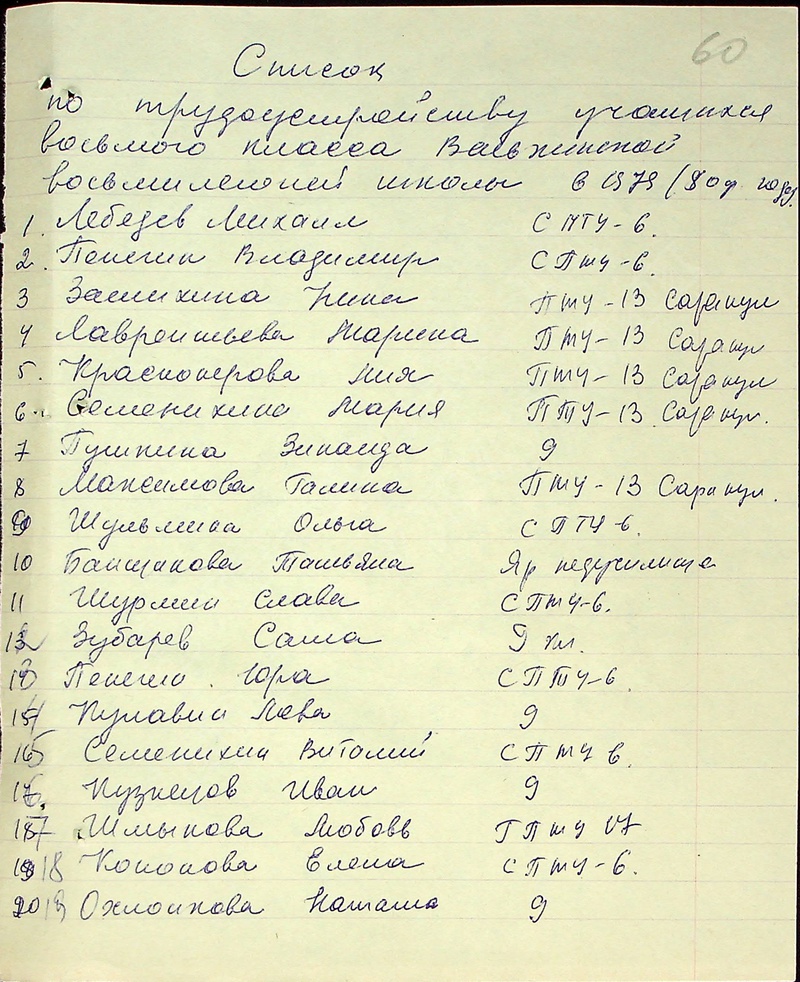 60
Список
по трудоустройству учащихся
восьмого класса Вавжинской
восьмилетней школы в 1979/80 уч. году.
1. Лебедев Михаил СПТУ-6.
2. Пенегин Владимир СПТУ-6.
3 Замихина Нина ПТУ-13 Сарапул
4 Лаврентьева Марина ПТУ-13 Сарапул
5. Красноперова Лия ПТУ-13 Сарапул
6. Семенихина Мария ПТУ-13 Сарапул.
7 Пушкина Зинаида 9
8 Максимова Галина ПТУ-13 Сарапул.
9 Шульмина Ольга СПТУ-6.
10 Татьяна Яр педучилище
11 Шурмин Слава СПТУ-6.
12 Зубарев Саша 9 кл.
13 Пенегин Юра СПТУ-6.
14 Кулавин Лева 9
15 Семенихин Виталий СПТУ 6.
16. Кузнецов Иван 9
17 Шмыкова Любовь ГПТУ 17
18 Кононова Елена СПТУ-6.
19 Охлопкова Наташа 9